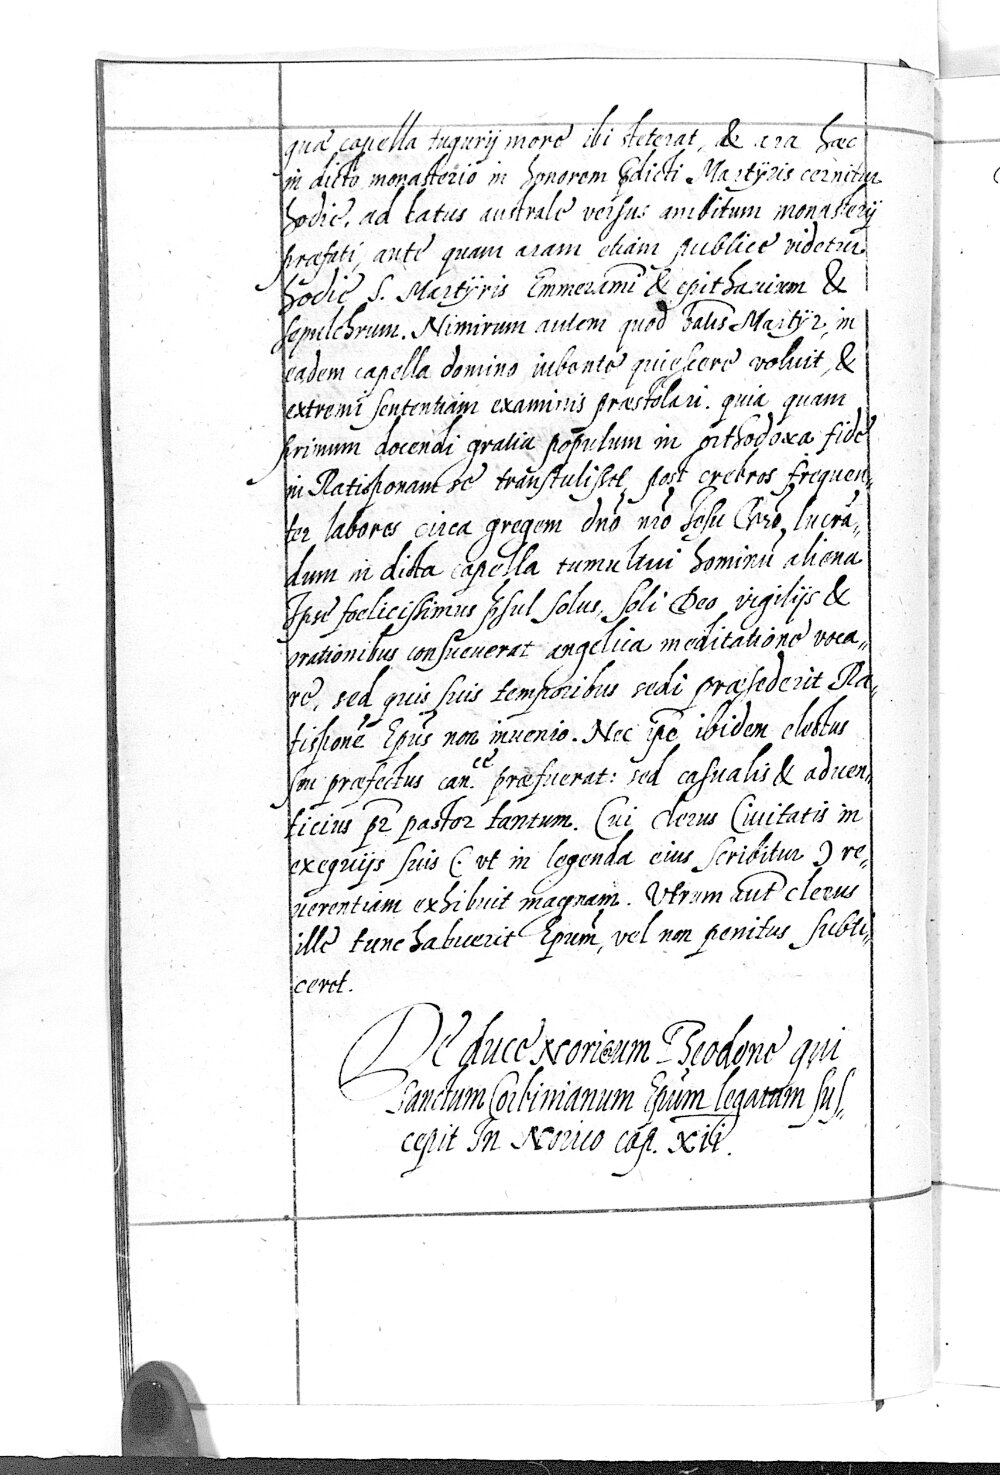 qua capella tugurij more ibi steterat, & ara hæc
in dicto monasterio in honorem pdicti Martÿris cernitur
hodie, ad latus australe versus ambitum monasterij
præfati, ante quam aram etiam publice videtur
hodie S. Martÿris Emmerami & epithavium &
sepulchrum. Nimirum autem quod talis Martÿr, in
eadem capella domino iubente quiescere voluit, &
extremi sententiam examinis præstolari. quia quam
primum docendi gratia populum in orthodoxa fide
in Ratisponam se transtulisset, post crebros frequen„
ter labores circa gregem dn̄o nr̄o Jesu Chr̄o, lucrā„
dum in dicta capella tumultui hominū aliena
Ipse foelicissimus p̄sul solus, soli Deo vigilijs &
orationibus consueuerat angelica meditatione voca„
re, sed quis suis temporibus sedi præsederit Ra„
tisponē Ep̄us non inuenio. Nec ip̄e ibidem electus
seu præfectus can.cē præfuerat: sed casualis & aduen„
ticius pr̄ pastor tantum. Cui clerus Ciuitatis in
exequijs suis (: vt in legenda eius scribitur :) re„
uerentiam exhibuit magnam. Vtrum aut̄ clerus
ille tunc habuerit Ep̄um, vel non penitus subti„
ceret.
De duce Noricum Theodone qui
Sanctum Corbinianum Ep̄um legatum sus„
cepit In Norico cap. XIII.